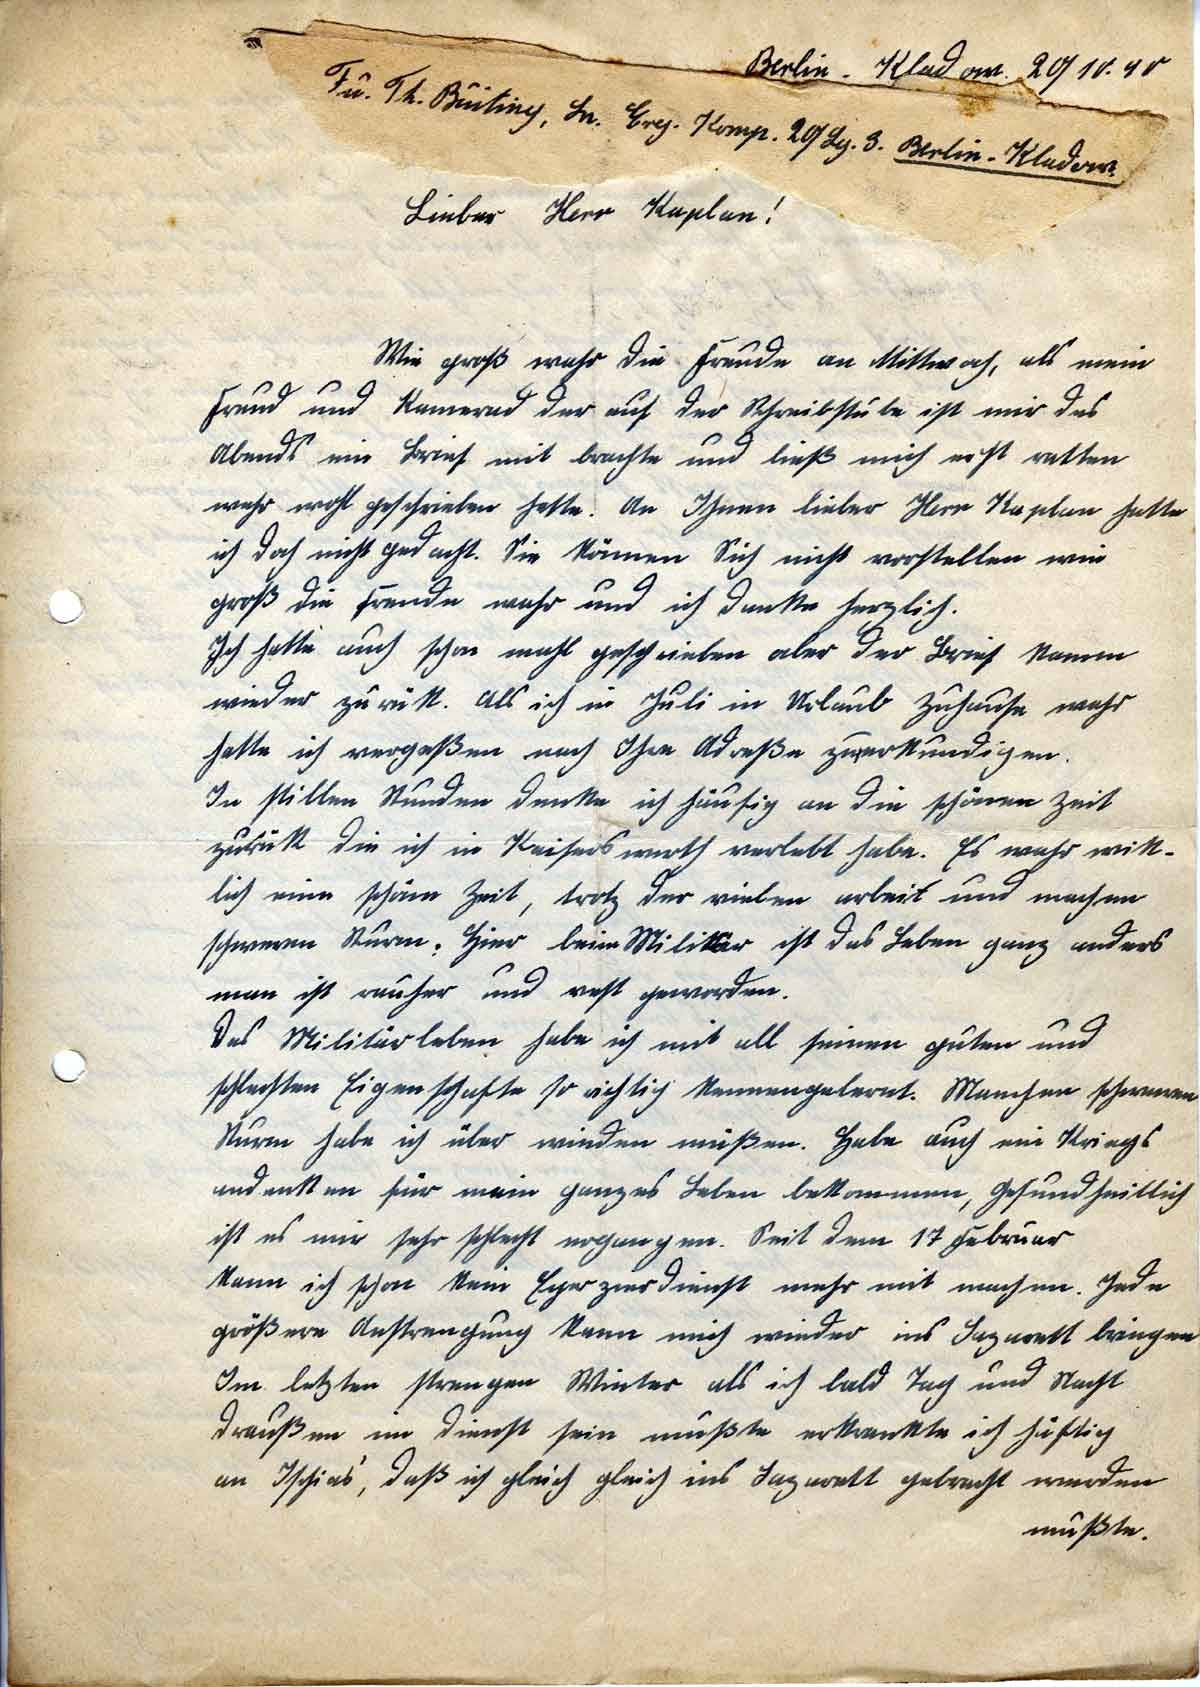 Berlin-Kladow. 29/10.40
Fu. Th. Büiting, Ln. Erg. Komp. 29 Lg. 3. Berlin-Kladow.
Lieber Herr Kaplan!
Wie groß wahr die Freude an Mittwoch, als mein
Freud und Kamerad der auf der Schreibstube ist mir des
Abends ein Brief mit brachte und ließ mich erst ratten
wehr wohl geschrieben hatte. An Ihnen lieber Herr Kaplan hatte
ich doch nicht gedacht. Sie können Sich nicht vorstellen wie
groß die Freude wahr und ich danke herzlich.
Ich hatte auch schon mahl geschrieben aber der Brief kamm
wieder zurük. Als ich in Juli in Urlaub Zuhause wahr
hatte ich vergeßen nach Ihre Adreße zuerkundigen.
In stillen Stunden denke ich häufig an die schönen Zeit
zurük die ich in Kaiserswerth verlebt habe. Es wahr wirk-
lich eine schöne Zeit, trotz der vielen arbeit und machen
schweren Sturm. Hier beim Militär ist das Leben ganz anders
man ist rauher und vest geworden.
Das Militärleben habe ich mit all seinen guten und
schlechten Eigenschafte so richtig kennengelernt. Manchen schweren
Sturm habe ich über winden müßen. Habe auch ein Kriegs
andenken für mein ganzes Leben bekommen, Gesundheitlich
ist es mir sehr schlecht ergangen. Seit dem 17 Februar
kann ich schon kein Exerzierdienst mehr mit machen. Jede
größere Anstrengung kann mich wieder ins Lazarett bringen
Im letzten strengen Winter als ich bald Tag und Nacht
draußen im Dienst sein mußte erkrankte ich häftig
an Ischias, daß ich gleich gleich ins Lazarett gebracht werden
mußte.